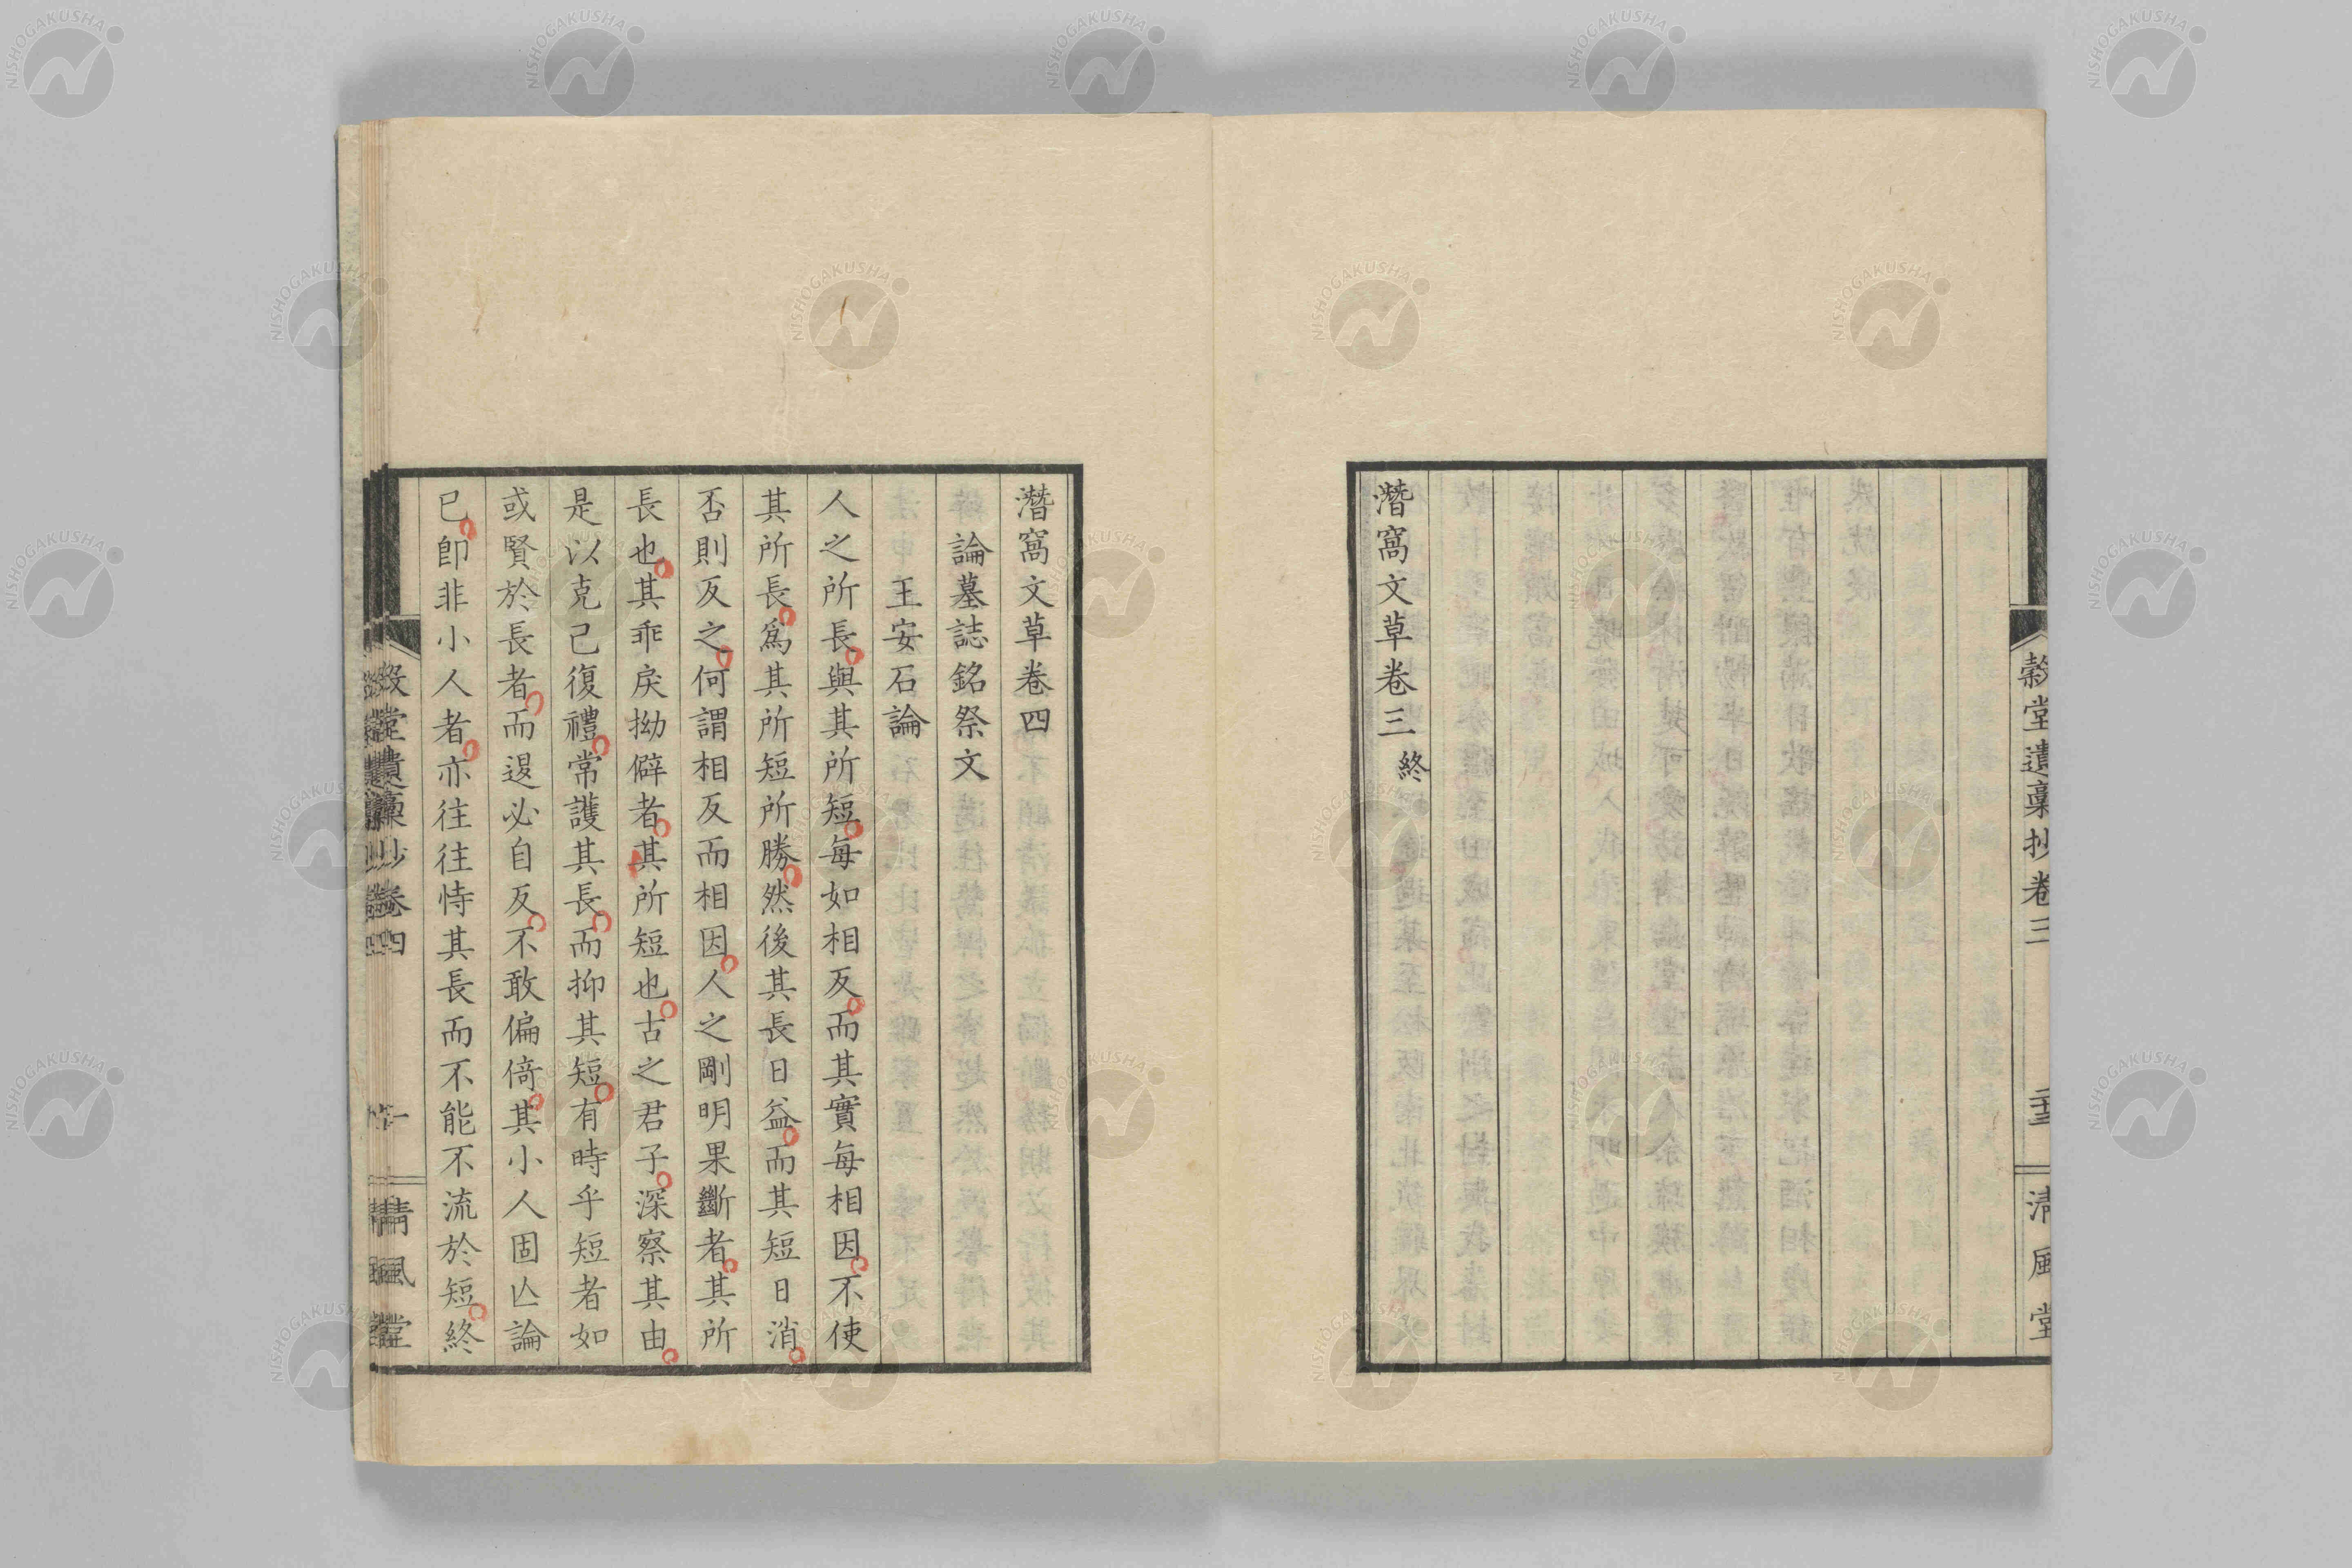 穀堂遺稾抄卷三
清風堂
潛窩文草卷三終
潛窩文草卷四
論墓誌銘祭文
王安石論
人之所長與其所短每如相反而其實每相因不使
其所長爲其所短所勝然後其長日益而其短日消
否則反之何謂相反而相因人之剛明果斷者其所
長也其乖戾拗僻者其所短也古之君子深察其由
是以克己復禮常護其長而抑其短有時乎短者如
或賢於長者而退必自反不敢偏倚其小人固亾論
已卽非小人者亦往往恃其長而不能不流於短終
穀堂遺稾抄卷四
一
清風堂
NISHOGAKUSHA